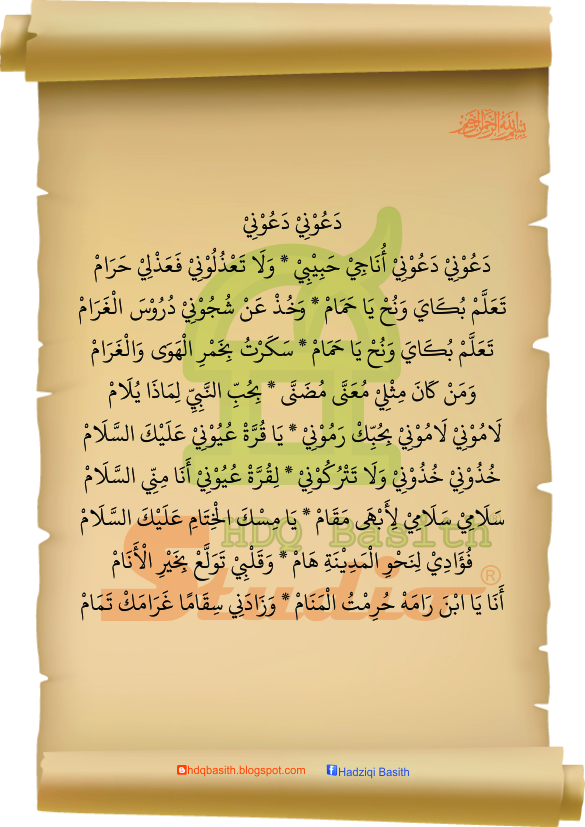 بسم الله الرحمن الرحيم
دَعُوْنِيْ دَعُوْنِيْ
دَعُوْنِيْ دَعُوْنِيْ أُنَاجِيْ حَبِيْبِيْ * وَلَا تَعْذُلُوْنِيْ فَعَذْلِيْ حَرَامْ
تَعَلَّمْ بُكَايَ وَنُحْ يَا حَمَامْ * وَخُذْ عَنْ شُجُوْنِيْ دُرُوْسَ الْغَرَامْ
تَعَلَّمْ بُكَايَ وَنُحْ يَا حَمَامْ * سَكَرْتُ بِخَمْرِ الْهَوَى وَالْغَرَامْ
وَمَنْ كَانَ مِثْلِيْ مُعَنَّى مُضَنَّى * بِحُبِّ النَّبِيِّ لِمَاذَا يُلَامْ
لَامُوْنِيْ لَامُوْنِيْ بِحُبِّكْ رَمُوْنِيْ * يَا قُرَّةْ عُيُوْنِيْ عَلَيْكَ السَّلَامْ
خُذُوْنِيْ خُذُوْنِيْ وَلَا تَتْرُكُوْنِيْ * لِقُرَّةْ عُيُوْنِيْ أَنَا مِنِّي السَّلَامْ
سَلَامِيْ سَلَامِيْ لِأَبْهَى مَقَامْ * يَا مِسْكَ الْخِتَامِ عَلَيْكَ السَّلَامْ
HDQ Basith
فُؤَادِيْ لِنَحْوِ الْمَدِيْنَةِ هَامْ * وَقَلْبِيْ تَوَلَّعْ بِخَيْرِ الْأَنَامْ
Studio®
أَنَا يَا ابْنَ رَامَهْ حُرِمْتُ الْمَنَامْ * وَزَادَنِي سِقَامًا غَرَامَكْ تَمَامْ
hdqbasith.blogspot.com Hadziqi Basith